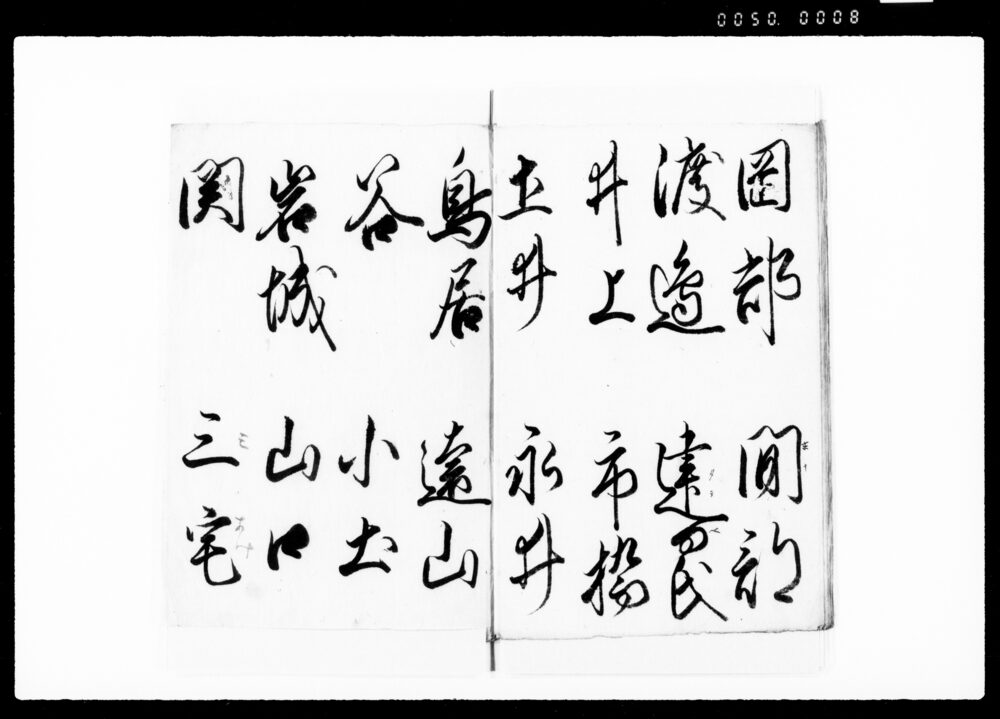 0050. 0008
岡部 間部
渡邉 建
井上 市橋
土井 永井
鳥居 遠山
谷 小出
岩城 山口
関 三宅